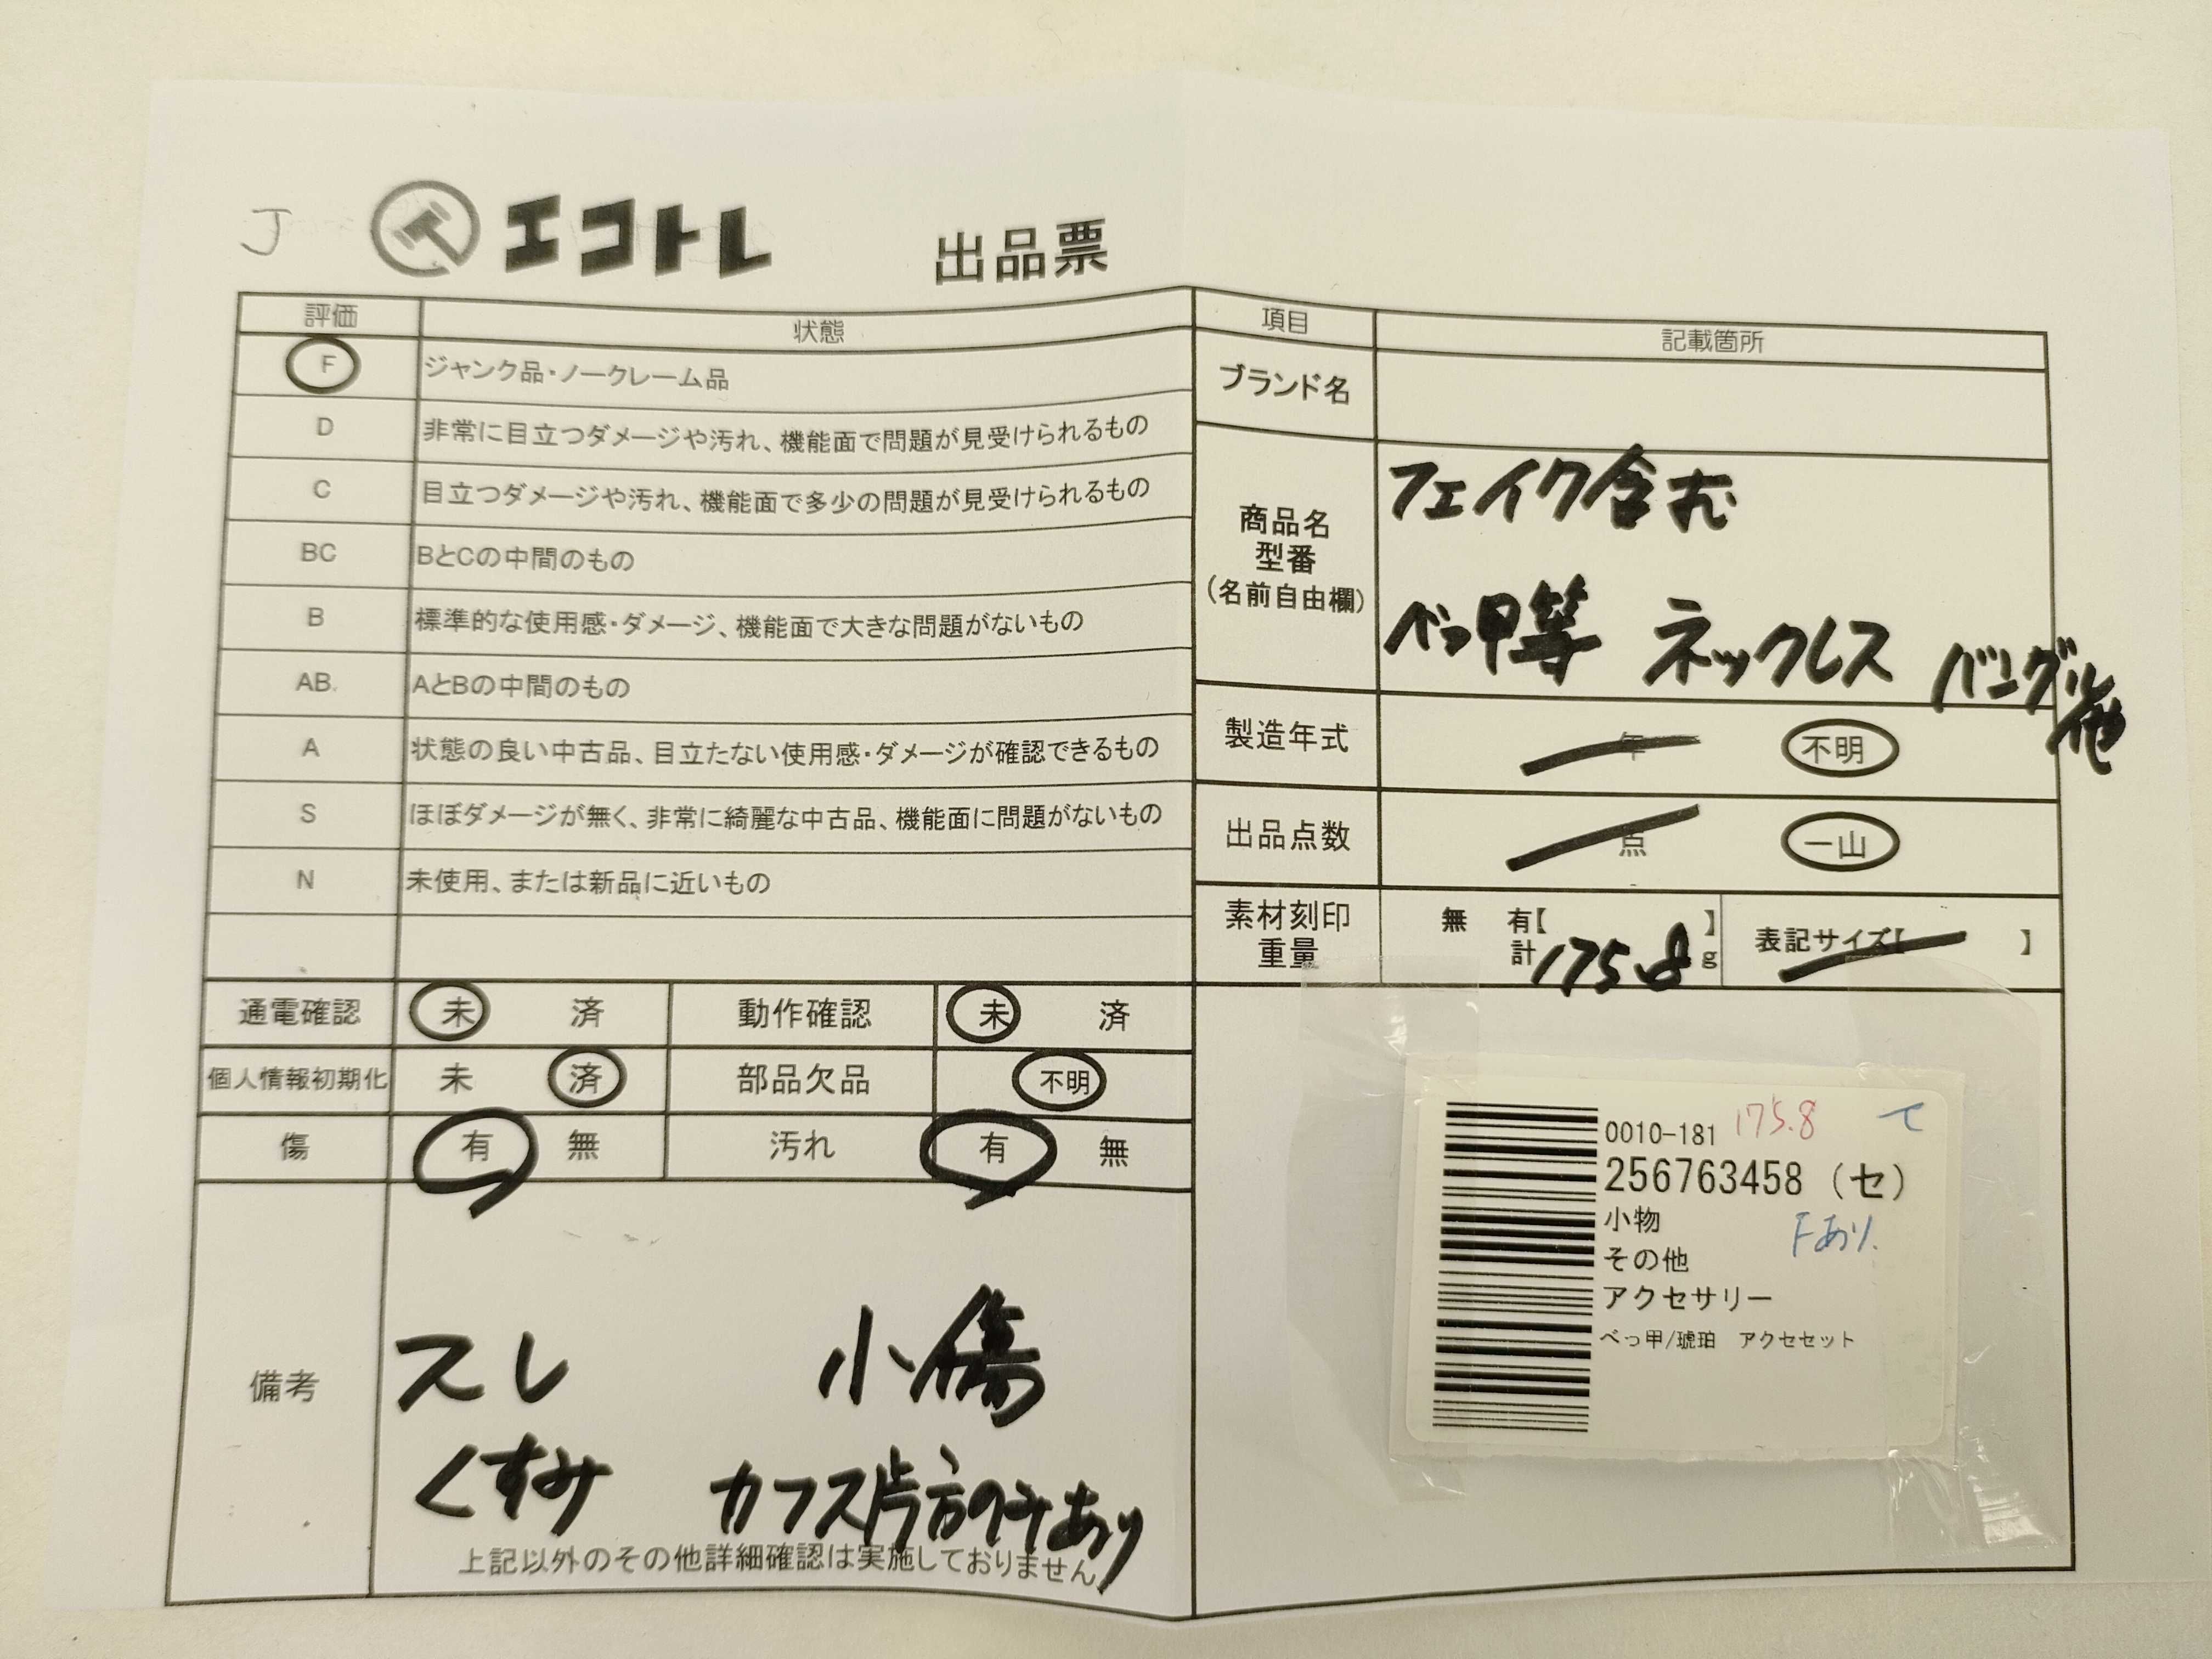 J
エコトレ 出品票
評価 状態
F ジャンク品・ノークレーム品
D 非常に目立つダメージや汚れ、機能面で問題が見受けられるもの
C 目立つダメージや汚れ、機能面で多少の問題が見受けられるもの
BC BとCの中間のもの
B 標準的な使用感・ダメージ、機能面で大きな問題がないもの
AB AとBの中間のもの
A 状態の良い中古品、目立たない使用感・ダメージが確認できるもの
S ほぼダメージが無く、非常に綺麗な中古品、機能面に問題がないもの
N 未使用、または新品に近いもの
通電確認 未 済 動作確認 未 済
個人情報初期化 未 済 部品欠品 不明
傷 有 無 汚れ 有 無
備考
スレ 小傷
くすみ カフス片方のみあり
上記以外のその他詳細確認は実施しておりません
項目 記載箇所
ブランド名
商品名
型番
(名前自由欄)
フェイク含む
べっ甲等 ネックレス バングル他
製造年式 年 不明
出品点数 点 一山
素材刻印
重量
無 有【 】
計 175.8 g
表記サイズ【 】
0010-181 175.8 て
256763458 (セ)
小物 Fあり.
その他
アクセサリー
べっ甲/琥珀 アクセセット